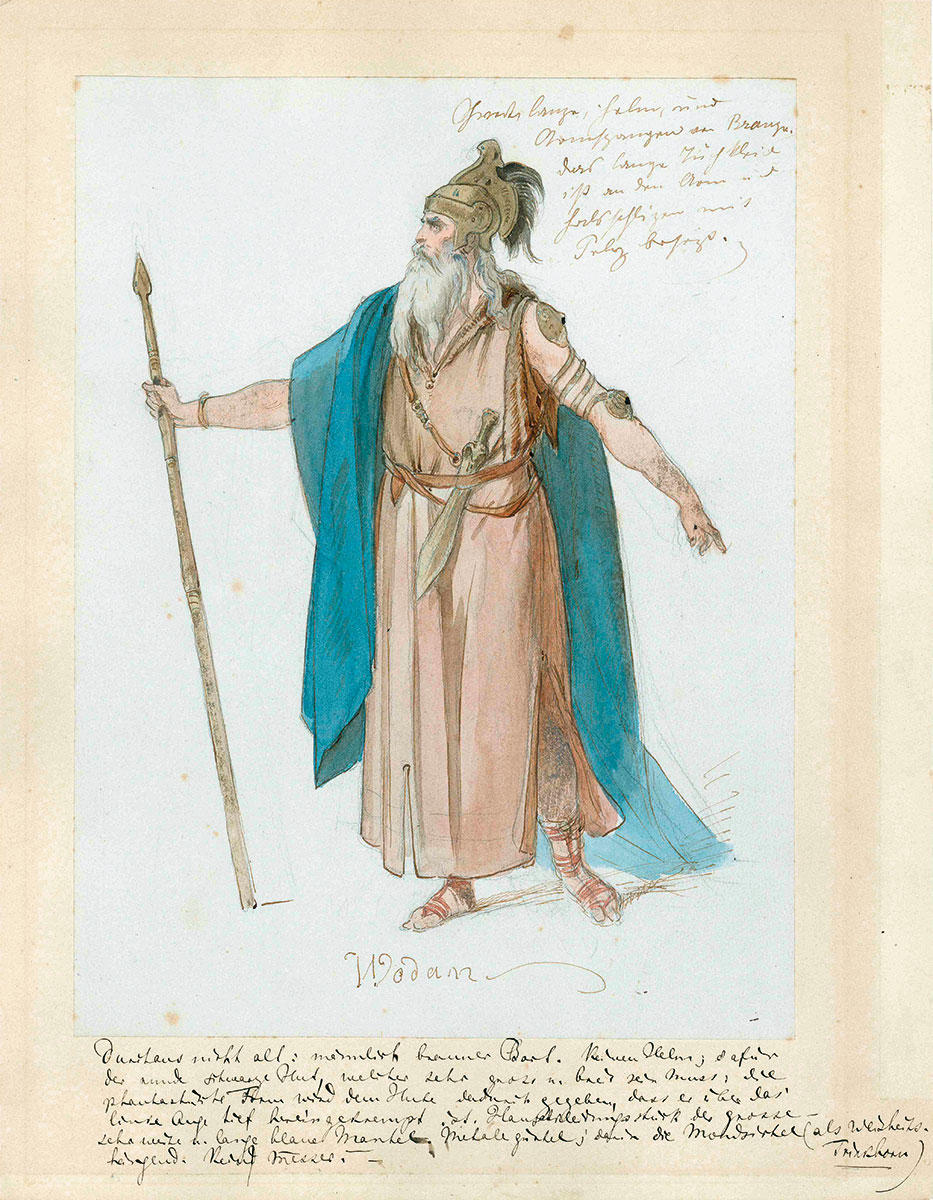 lanze, Helm, und
Armspangen von Bronze.
das lange Tuchkleid
ist an den Arm und
Halsschlitzen mit
Pelz besezt.
Wodan
Durchaus nicht alt: männlich brauner Bart. Keinen Helm; dafür
der runde schwarze Hut, welcher sehr gross u. breit sein muss; die
phantastische Form wird dem Hute dadurch gegeben, dass er über das
linke Auge tief hereingekrempt ist. Hauptkleidungsstück der grosse
sehr weite u. lange blaue Mantel. Metallgürtel; darin die (als Weisheits-
hängend. Kein Messer. —
Trinkhorn)